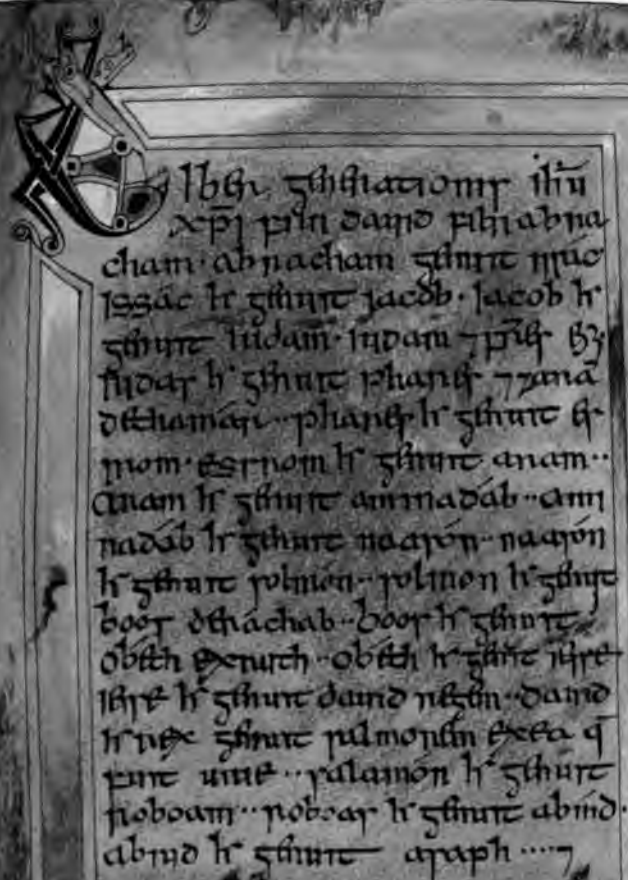 Liber generationis ihū
xp̄i filii dauid filii abra
cham · abracham genuit isác
Issác h' genuit jacob · Iacob h'
genuit iudam · iudam ⁊ fr̄es ei;
iudas h' genuit phares ⁊ zarā
dethamár ·· phares h' genuit es
rom · esrrom h' genuit aram ··
aram h' genuit aminadáb ·· ami
nadáb h' genuit naasón ·· naasón
h' genuit solmón ·· solmon h' genuit
boos derachab ·· boos h' genuit
obeth exruth ·· obeth h' genuit iesse
iesse h' genuit dauid regem ·· dauid
h' rex genuit salmonem exea q̄
fuit urie ·· salamón h' genuit
roboam ·· roboas h' genuit abiud ·
abiud h' genuit asaph ···· ⁊